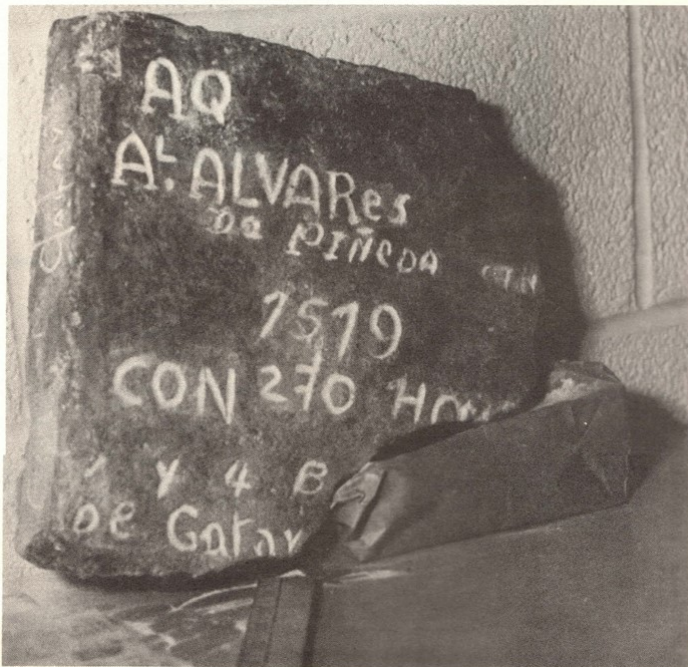 AQ
AL. ALVARes
De PIÑeDA
1519
CON 270
Y 4 B
De Garay